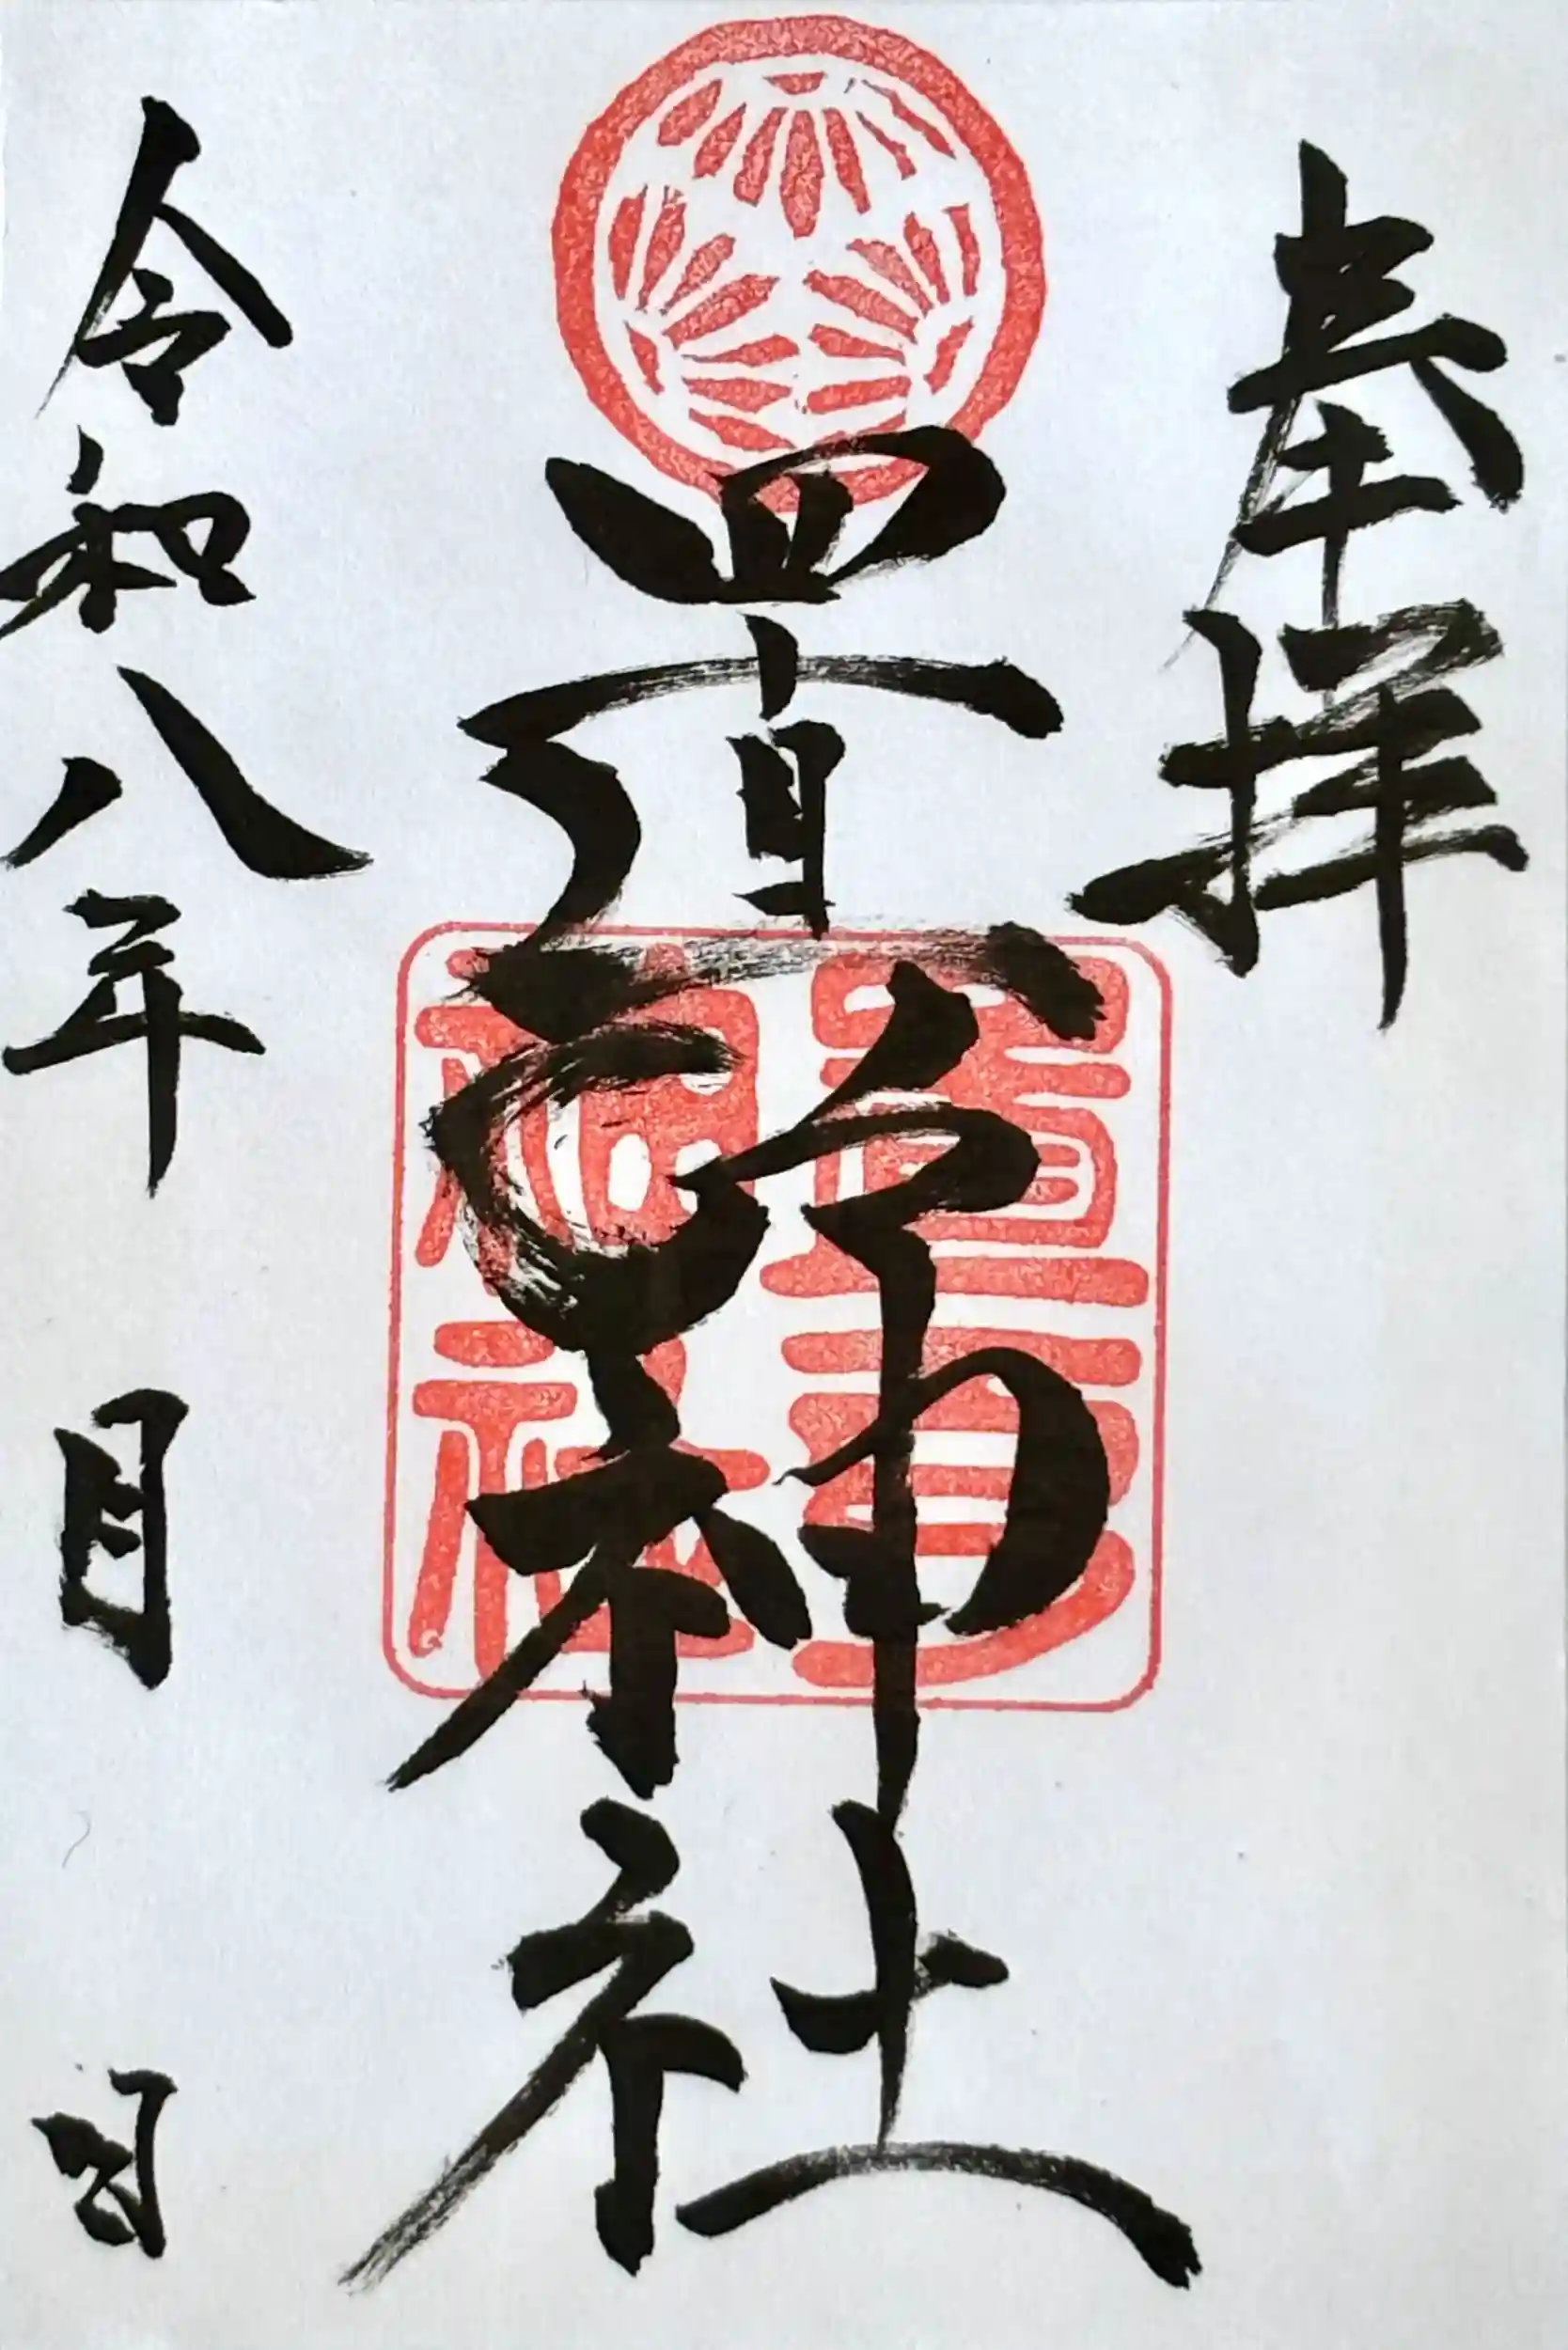 奉拝
神社
令和八年 月 日
神社